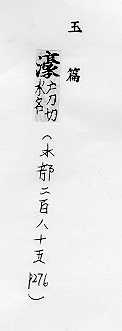 玉篇
濠
戶刀切
水名
（水部二百八十五 p276）